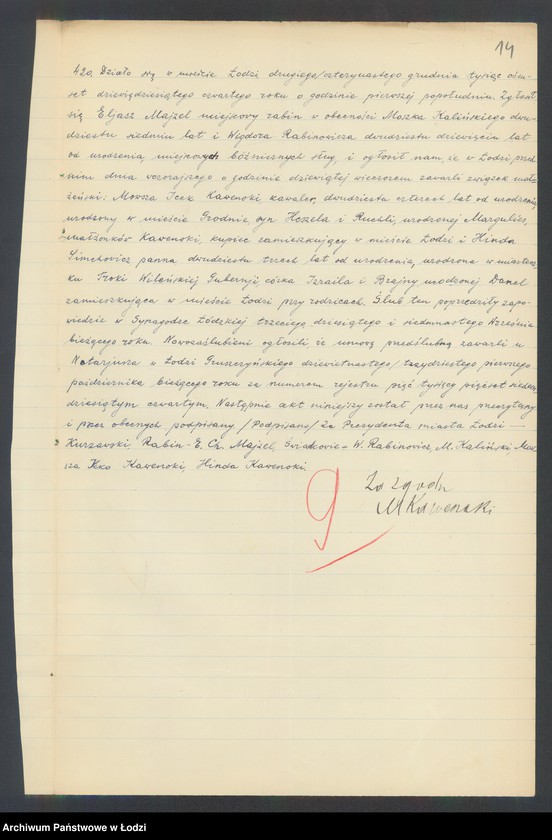 14
420. Działo się w mieście Łodzi drugiego/czternastego grudnia tysiąc ośm-
set dziewiędziesiątego czwartego roku o godzinie pierwszej popołudniu. Zgłosił
się Eljasz Majzel miejscowy rabin w obecności Moszka Kalińskiego dwu-
dziestu siedmiu lat i Wigdora Rabinowicza dwudziestu dziewięciu lat
od urodzenia, miejscowych bóżniczych sług, i ogłosił nam, że w Łodzi, przed
nim dnia wczorajszego o godzinie dziewiątej wieczorem zawarli związek mał-
żeński: Mowsza Icek Kawenoki, kawaler, dwudziestu czterech lat od urodzenia,
urodzony w mieście Grodnie, syn Hczela i Ruchli, urodzonej Margulies,
małżonków Kawenoki, kupiec zamieszkujący w mieście Łodzi i Hinda
Simchowicz panna dwudziestu trzech lat od urodzenia, urodzona w miastecz-
ku Troki Wileńskiej Gubernji córka Izraila i Brajny urodzonej Danel
zamieszkująca w mieście Łodzi przy rodzicach. Ślub ten poprzedziły zapo-
wiedzie w Synagodze Łódzkiej trzeciego, dziesiątego i siedmnastego Września
bieżącego roku. Nowozaślubieni ogłosili że umowę przedślubną zawarli u
Notarjusza w Łodzi Gruszczyńskiego dziewiętnastego/trzydziestego pierwszego
października bieżącego roku za numerem rejestru pięć tysięcy pięćset siedem-
dziesiątym czwartym. Następnie akt niniejszy został przez nas przeczytany
i przez obecnych podpisany /Podpisano/ Za Prezydenta miasta Łodzi —
Kurzawski Rabin - E. Ch. Majzel, Świadkowie - W. Rabinowicz, M. Kaliński Mow-
sza Icko Kawenoki, Hinda Kawenoki.
Za zgodn
M Kawenoki
9
Archiwum Państwowe w Łodzi